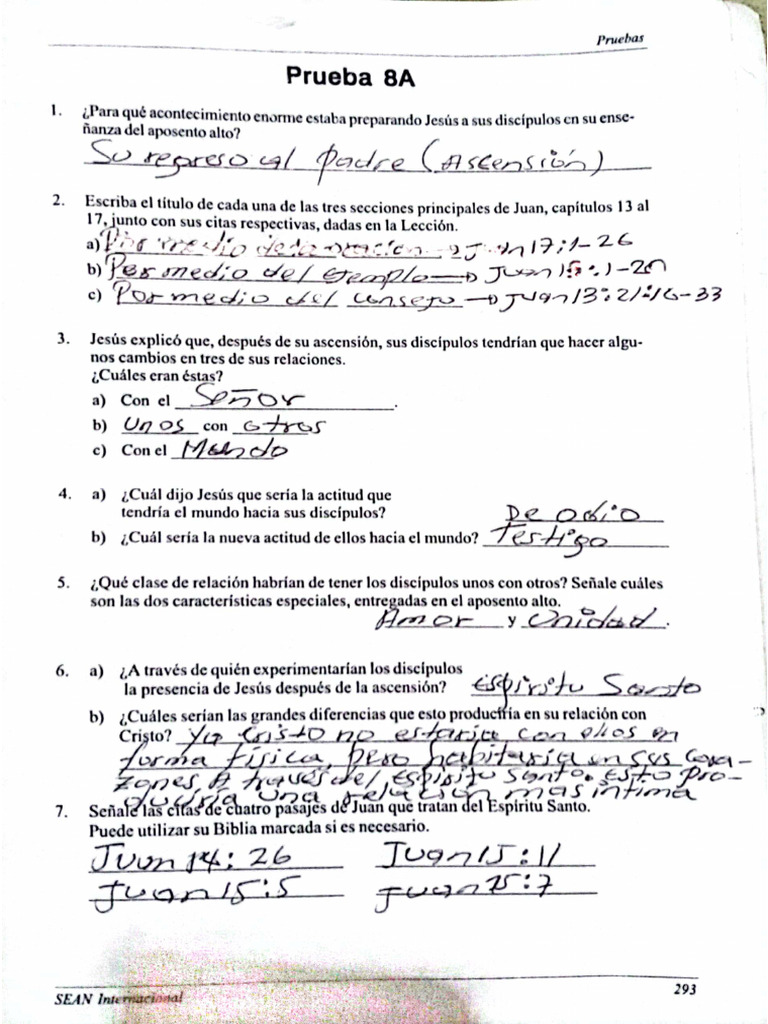 Pruebas
Prueba 8A
1. ¿Para qué acontecimiento enorme estaba preparando Jesús a sus discípulos en su ense-
ñanza del aposento alto?
Su regreso al padre (Ascensión)
2. Escriba el título de cada una de las tres secciones principales de Juan, capítulos 13 al
17, junto con sus citas respectivas, dadas en la Lección.
a) Por medio de la oración → Juan 17:1-26
b) Por medio del Ejemplo → Juan 13:1-20
c) Por medio del consejo → Juan 13:21:16-33
3. Jesús explicó que, después de su ascensión, sus discípulos tendrían que hacer algu-
nos cambios en tres de sus relaciones.
¿Cuáles eran éstas?
a) Con el Señor.
b) Unos con otros
c) Con el Mundo
4. a) ¿Cuál dijo Jesús que sería la actitud que
tendría el mundo hacia sus discípulos? De odio
b) ¿Cuál sería la nueva actitud de ellos hacia el mundo? Testigo
5. ¿Qué clase de relación habrían de tener los discípulos unos con otros? Señale cuáles
son las dos características especiales, entregadas en el aposento alto.
Amor y Unidad.
6. a) ¿A través de quién experimentarían los discípulos
la presencia de Jesús después de la ascensión? Espíritu Santo
b) ¿Cuáles serían las grandes diferencias que esto produciría en su relación con
Cristo? Ya Cristo no estaria con ellos en
forma física, pero habitaría en sus cora-
zones A través del Espiritu Santo. Esto pro-
duciria una relación mas intima
7. Señale las citas de cuatro pasajes de Juan que tratan del Espíritu Santo.
Puede utilizar su Biblia marcada si es necesario.
Juan 14:26 Juan 15:11
Juan 15:5 Juan 15:7
SEAN Internacional 293